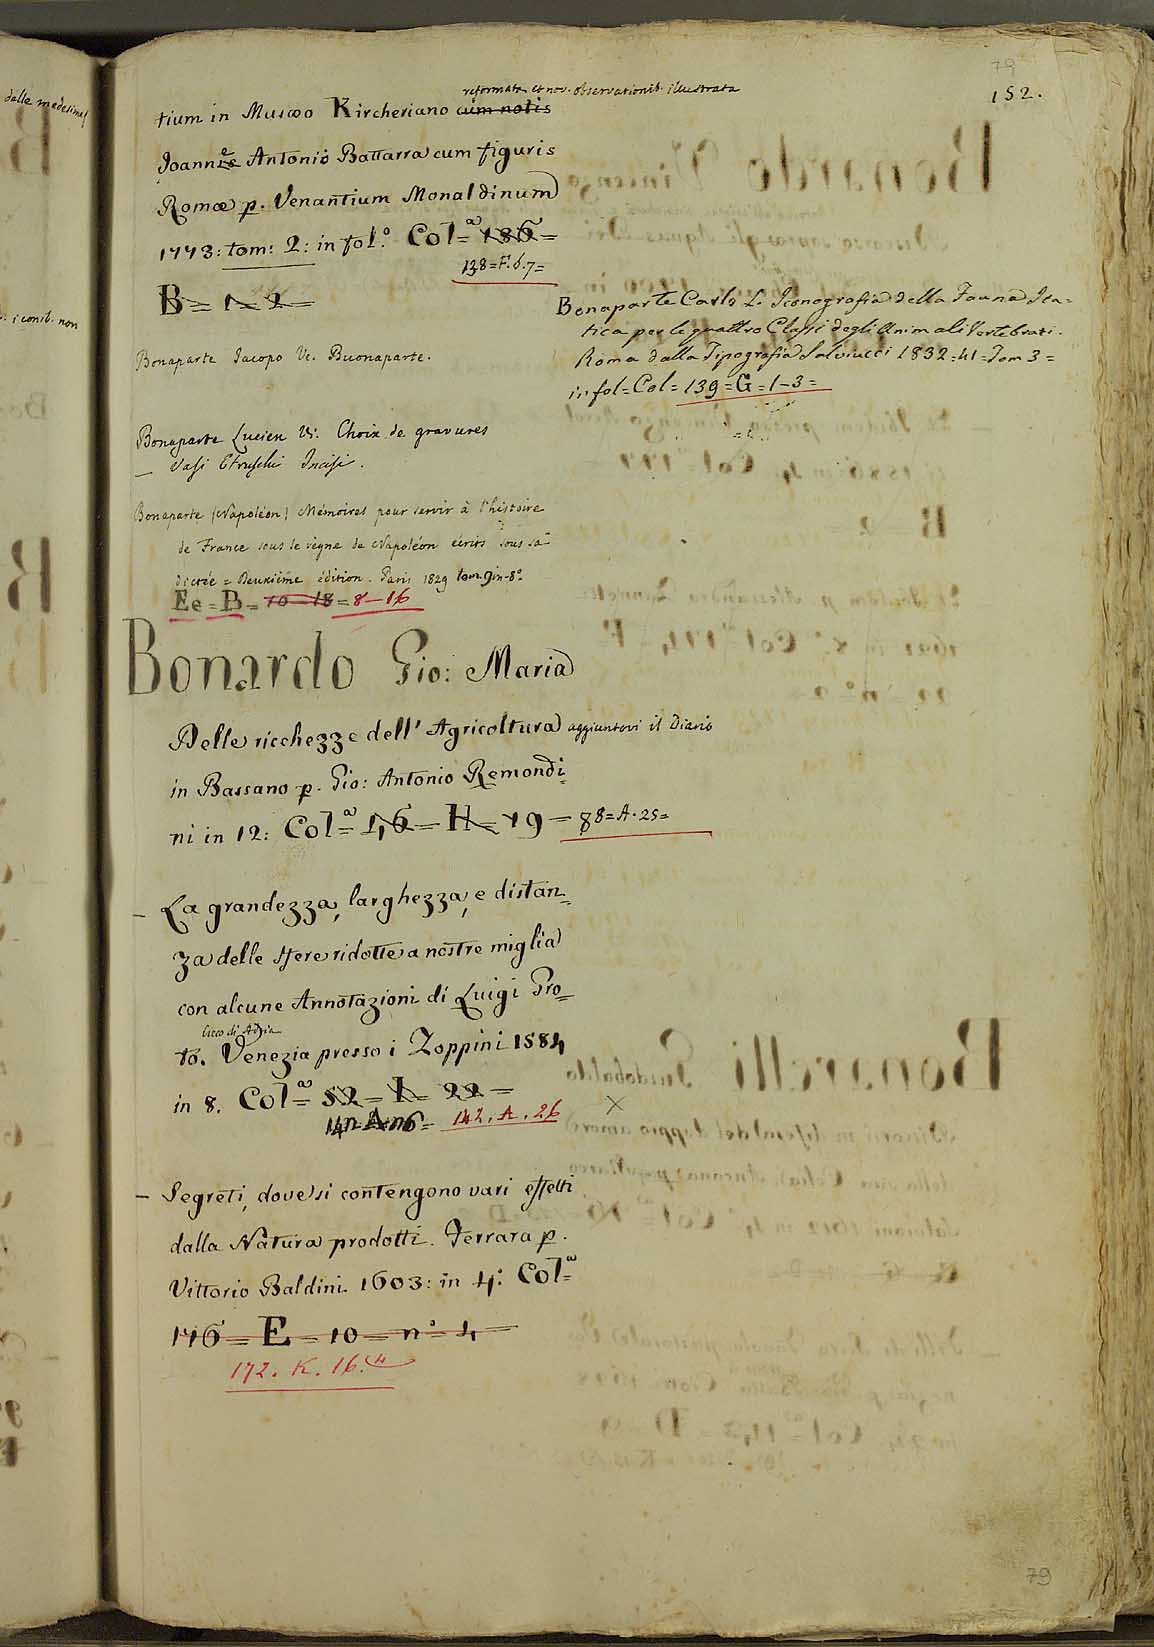 dalle medesime
i conib. non
79
152.
reformata et nov. observationib. illustrata
tium in Musæo Kircheriano cum notis
Joanne Antonio Battarra cum figuris
Romæ p. Venantium Monaldinum
1773: tom: 2: in fol.º Colª= 136=
138=F.6.7=
B= 1= 2=
Bonaparte Jacopo V. Buonaparte.
Bonaparte Lucien V. Choix de gravures
— Vasi Etruschi Incisi.
Bonaparte (Napoléon) Mémoires pour servir à l'histoire
de France sous le règne de Napoléon écrits sous sa
dictée = Deuxième édition. Paris 1829 tom. 9 in-8º
Ee=B=10-18=8-16
Bonaparte Carlo L. Iconografia della Fauna Ita=
lica per le quattro Classi degli Animali Vertebrati.
Roma dalla Tipografia Salviucci 1832=41=Tom 3=
in fol=Col=139=G=1-3=
Bonardo Gio: Maria
Delle ricchezze dell' Agricoltura aggiuntovi il Diario
in Bassano p. Gio: Antonio Remondi=
ni in 12: Colª= 46=H=19= 88=A.25=
— La grandezza, larghezza, e distan=
za delle sfere ridotte a nostre miglia
con alcune Annotazioni di Luigi Gro=
Cieco di Adria
to. Venezia presso i Zoppini 1584
in 8. Colª= 52=I=22=
142.A.26
— Segreti, dove si contengono vari effetti
dalla Natura prodotti. Ferrara p.
Vittorio Baldini 1603: in 4º: Colª=
176=E=10=nº 4=
172.K.16.4
79